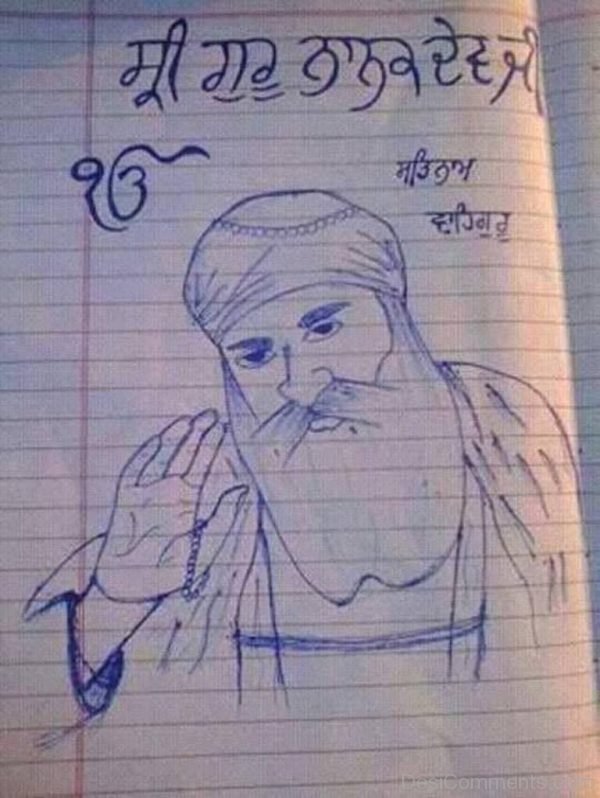 ਸ੍ਰੀ ਗੁਰੂ ਨਾਨਕ ਦੇਵ ਜੀ
ੴ
ਸਤਿਨਾਮ
ਵਾਹਿਗੁਰੂ
DesiComments.com